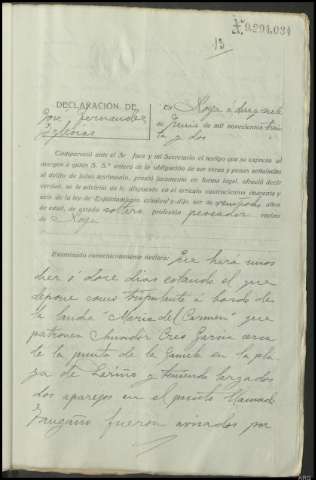 A.9.294,031
13
DECLARACIÓN DE
José Fernandez
Iglesias
En Noya a diez y siete
de Junio de mil novecientos trein
ta y dos
Compareció ante el Sr. Juez y mi Secretario el testigo que se expresa al
margen a quien S. S.ª enteró de la obligación de ser veraz y penas señaladas
al delito de falso testimonio, prestó juramento en forma legal, ofreció decir
verdad, se le advierte de lo dispuesto en el artículo cuatrocientos cuarenta y
seis de la ley de Enjuiciamiento criminal y dijo: ser de años
de edad, de estado soltero profesión pescador vecino
de Noya
Examinado convenientemente declara: Que hará unos
diez ó doce dias estando el que
depone como tripulante a bordo de
la lancha "Maria del Carmen" que
patronea Salvador Oreo Garcia cerca
de la punta de la Gamela en la pla
ya de Lariño y teniendo largados
dos aparejos en el punto llamado
fueron avisados por